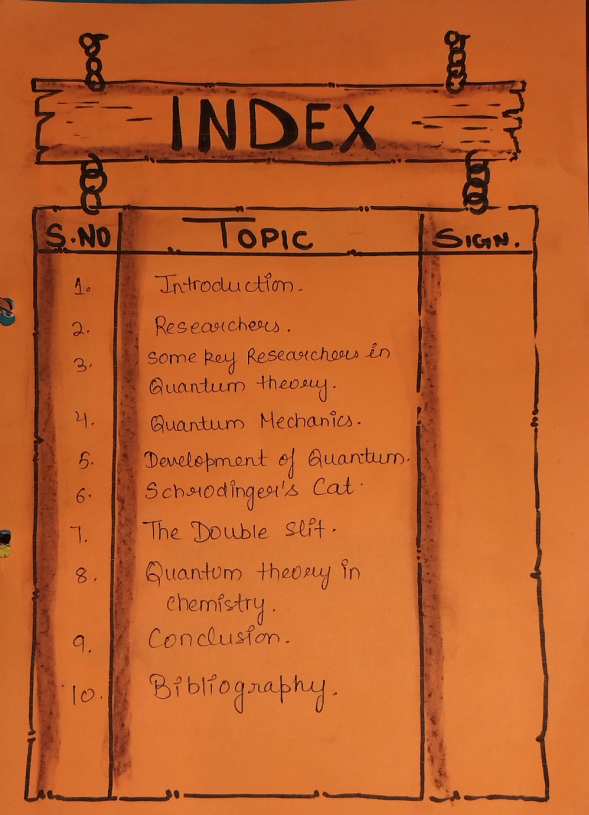 INDEX
S.NO TOPIC SIGN.
1. Introduction.
2. Researchers.
3. Some key Researchers in
Quantum theory.
4. Quantum Mechanics.
5. Development of Quantum.
6. Schrodinger's Cat.
7. The Double slit.
8. Quantom theory in
chemistry.
9. Conclusion.
10. Bibliography.